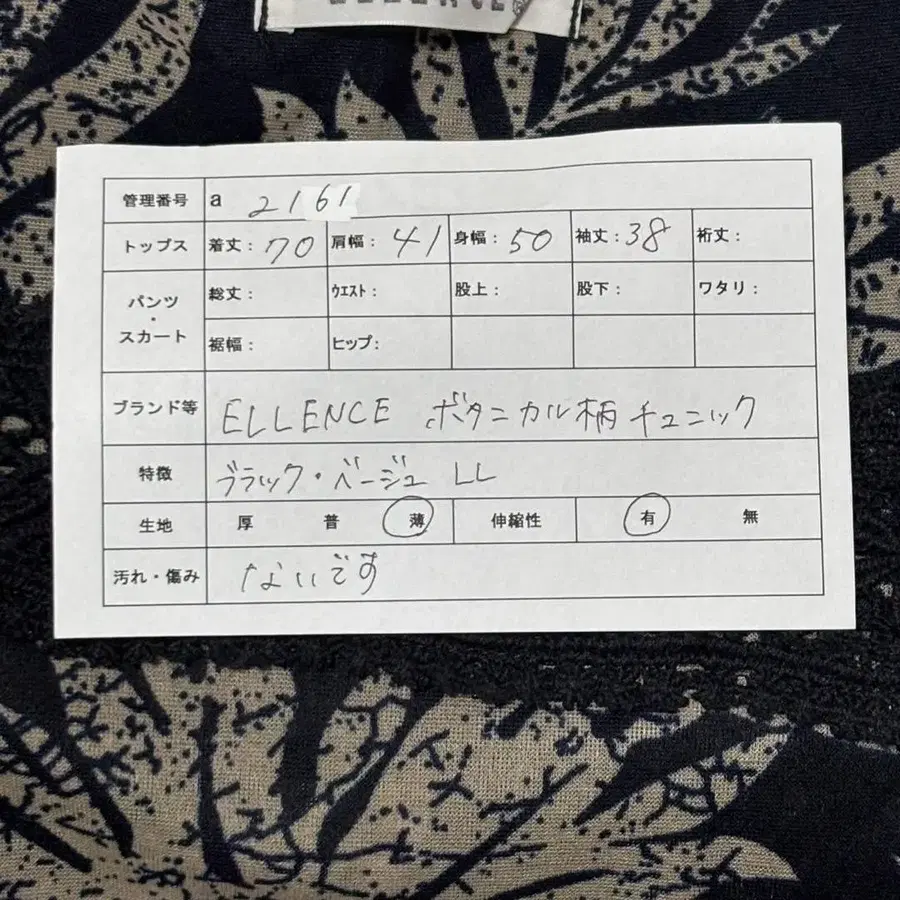 ELLENCE
管理番号 a 2161
トップス 着丈: 70 肩幅: 41 身幅: 50 袖丈: 38 裄丈:
パンツ・スカート 総丈: ウエスト: 股上: 股下: ワタリ:
裾幅: ヒップ:
ブランド等 ELLENCE ボタニカル柄チュニック
特徴 ブラック・ベージュ LL
生地 厚 普 薄 伸縮性 有 無
汚れ・傷み ないです